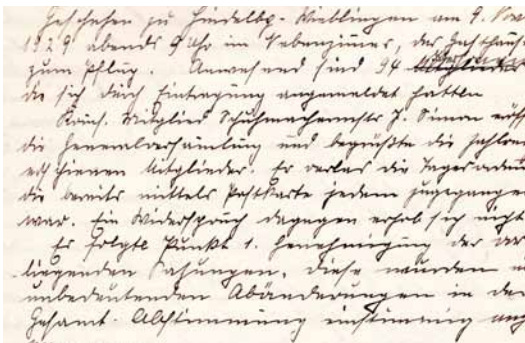 Geschehen zu Heidelbg.-Wieblingen am 9. Nov
1929 abends 9 Uhr im Nebenzimer, des Gasthaus
zum Pflug. Anwesend sind 94
die sich durch Eintragung angemeldet hatten
Mitglied Schuhmachermstr J. Simon eröff
die Generalversamlung und begrüßte die zahlrei
erschienen Mitglieder. Er verlas die Tagesordnu
die bereits mittels Postkarte jedem zugegangen
war. Ein Widerspruch dagegen erhob sich nicht
Es folgte Punkt 1. Genehmigung der
liegenden Satzungen. Diese wurden
unbedeutenden Abänderungen in der
Gesamt-Abstimmung einstimmig ang